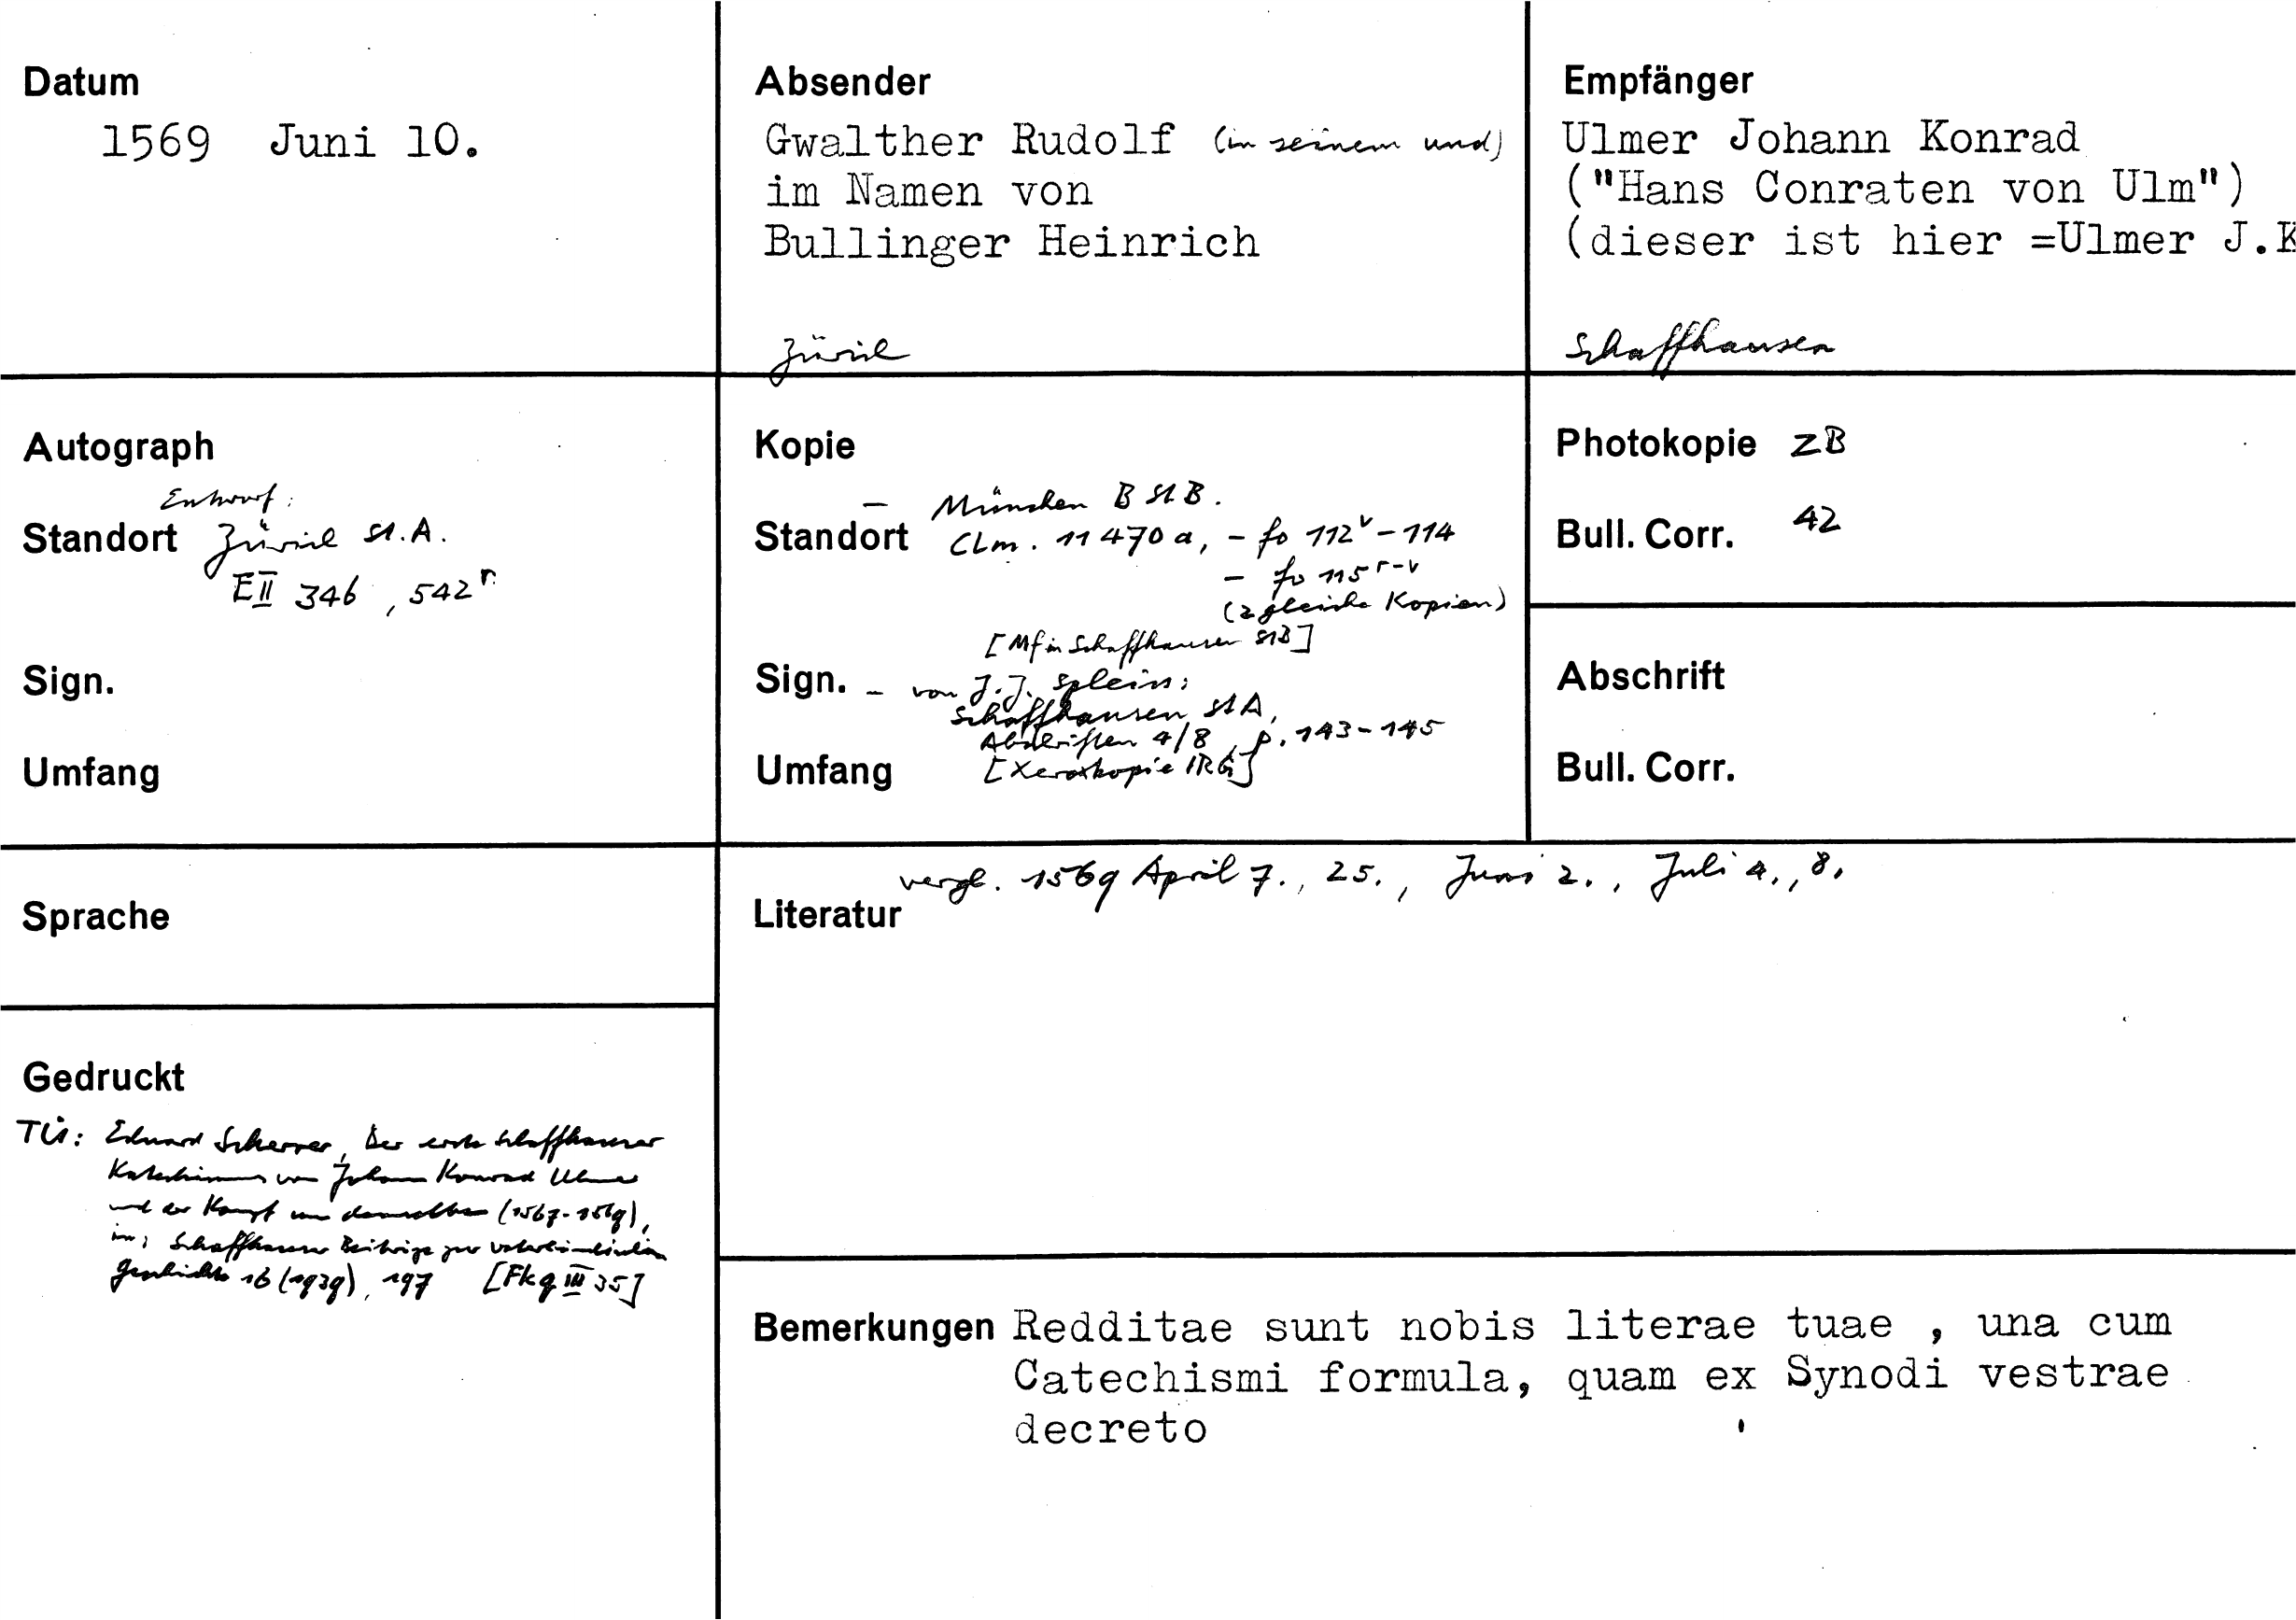 Datum
1569 Juni 10.
Absender
Gwalther Rudolf (in seinem und)
im Namen von
Bullinger Heinrich
Zürich
Empfänger
Ulmer Johann Konrad
("Hans Conraten von Ulm")
(dieser ist hier =Ulmer J.K
Schaffhausen
Autograph
Entwurf:
Standort Zürich StA.
E II 346, 542r
Sign.
Umfang
Kopie
- München BStB.
Standort Clm. 11470a, - fo 112v-114
- fo 115r-v
(2 gleiche Kopien)
[Mf in Schaffhausen StB]
Sign. - von J.J. Spleiss:
Schaffhausen StA,
Abschriften 4/8, p. 143-145
Umfang [Xerokopie IRG]
Photokopie ZB
Bull. Corr. 42
Abschrift
Bull. Corr.
Sprache
vergl. 1569 April 7., 25., Juni 2., Juli 4., 8.
Literatur
Gedruckt
TÜ: Eduard Scherrer, Der erste Schaffhauser
Katechismus von Johann Konrad Ulmer
und der Kampf um denselben (1567-1569),
in: Schaffhauser Beiträge zur vaterländischen
Geschichte 16 (1939), 197 [Fkg III 35]
Bemerkungen Redditae sunt nobis literae tuae , una cum
Catechismi formula, quam ex Synodi vestrae
decreto